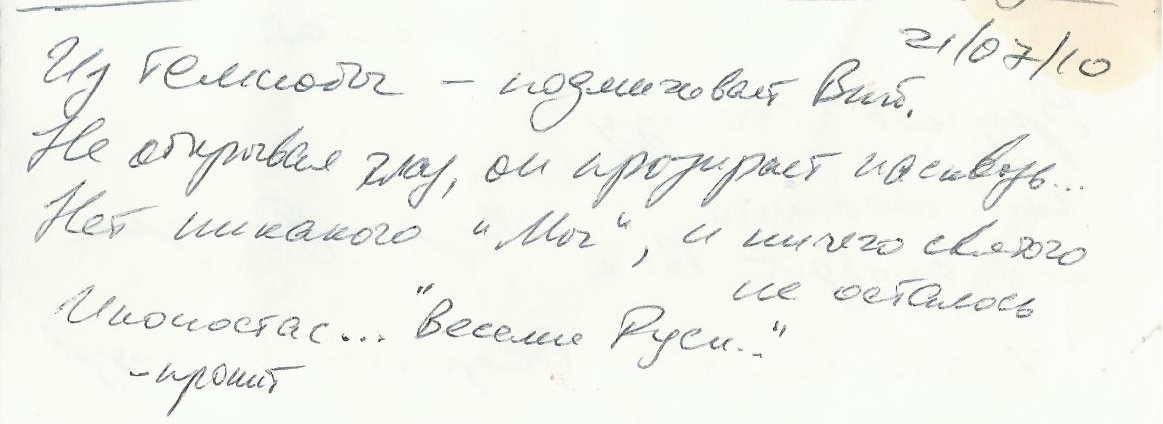 21/07/10
Из темноты – подмигивает Вий.
Не открывая глаз, он прозирает насквозь...
Нет никакого "Мы", и ничего святого
не осталось
Иконостас... "Веселие Руси..."